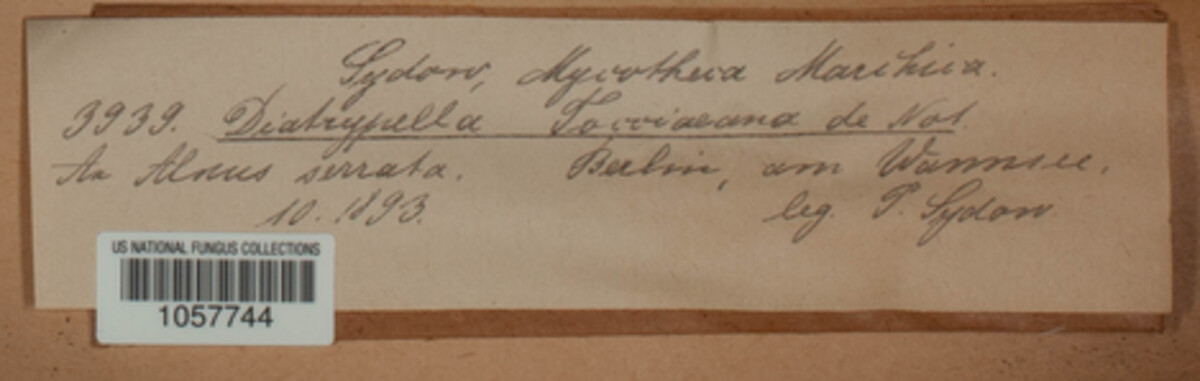 Sydow, Mycotheca Marchica.
3939. Diatrypella Tocciaeana de Not.
An Alnus serrata. Berlin, am Wannsee.
10. 1893. leg. P. Sydow
US NATIONAL FUNGUS COLLECTIONS
1057744